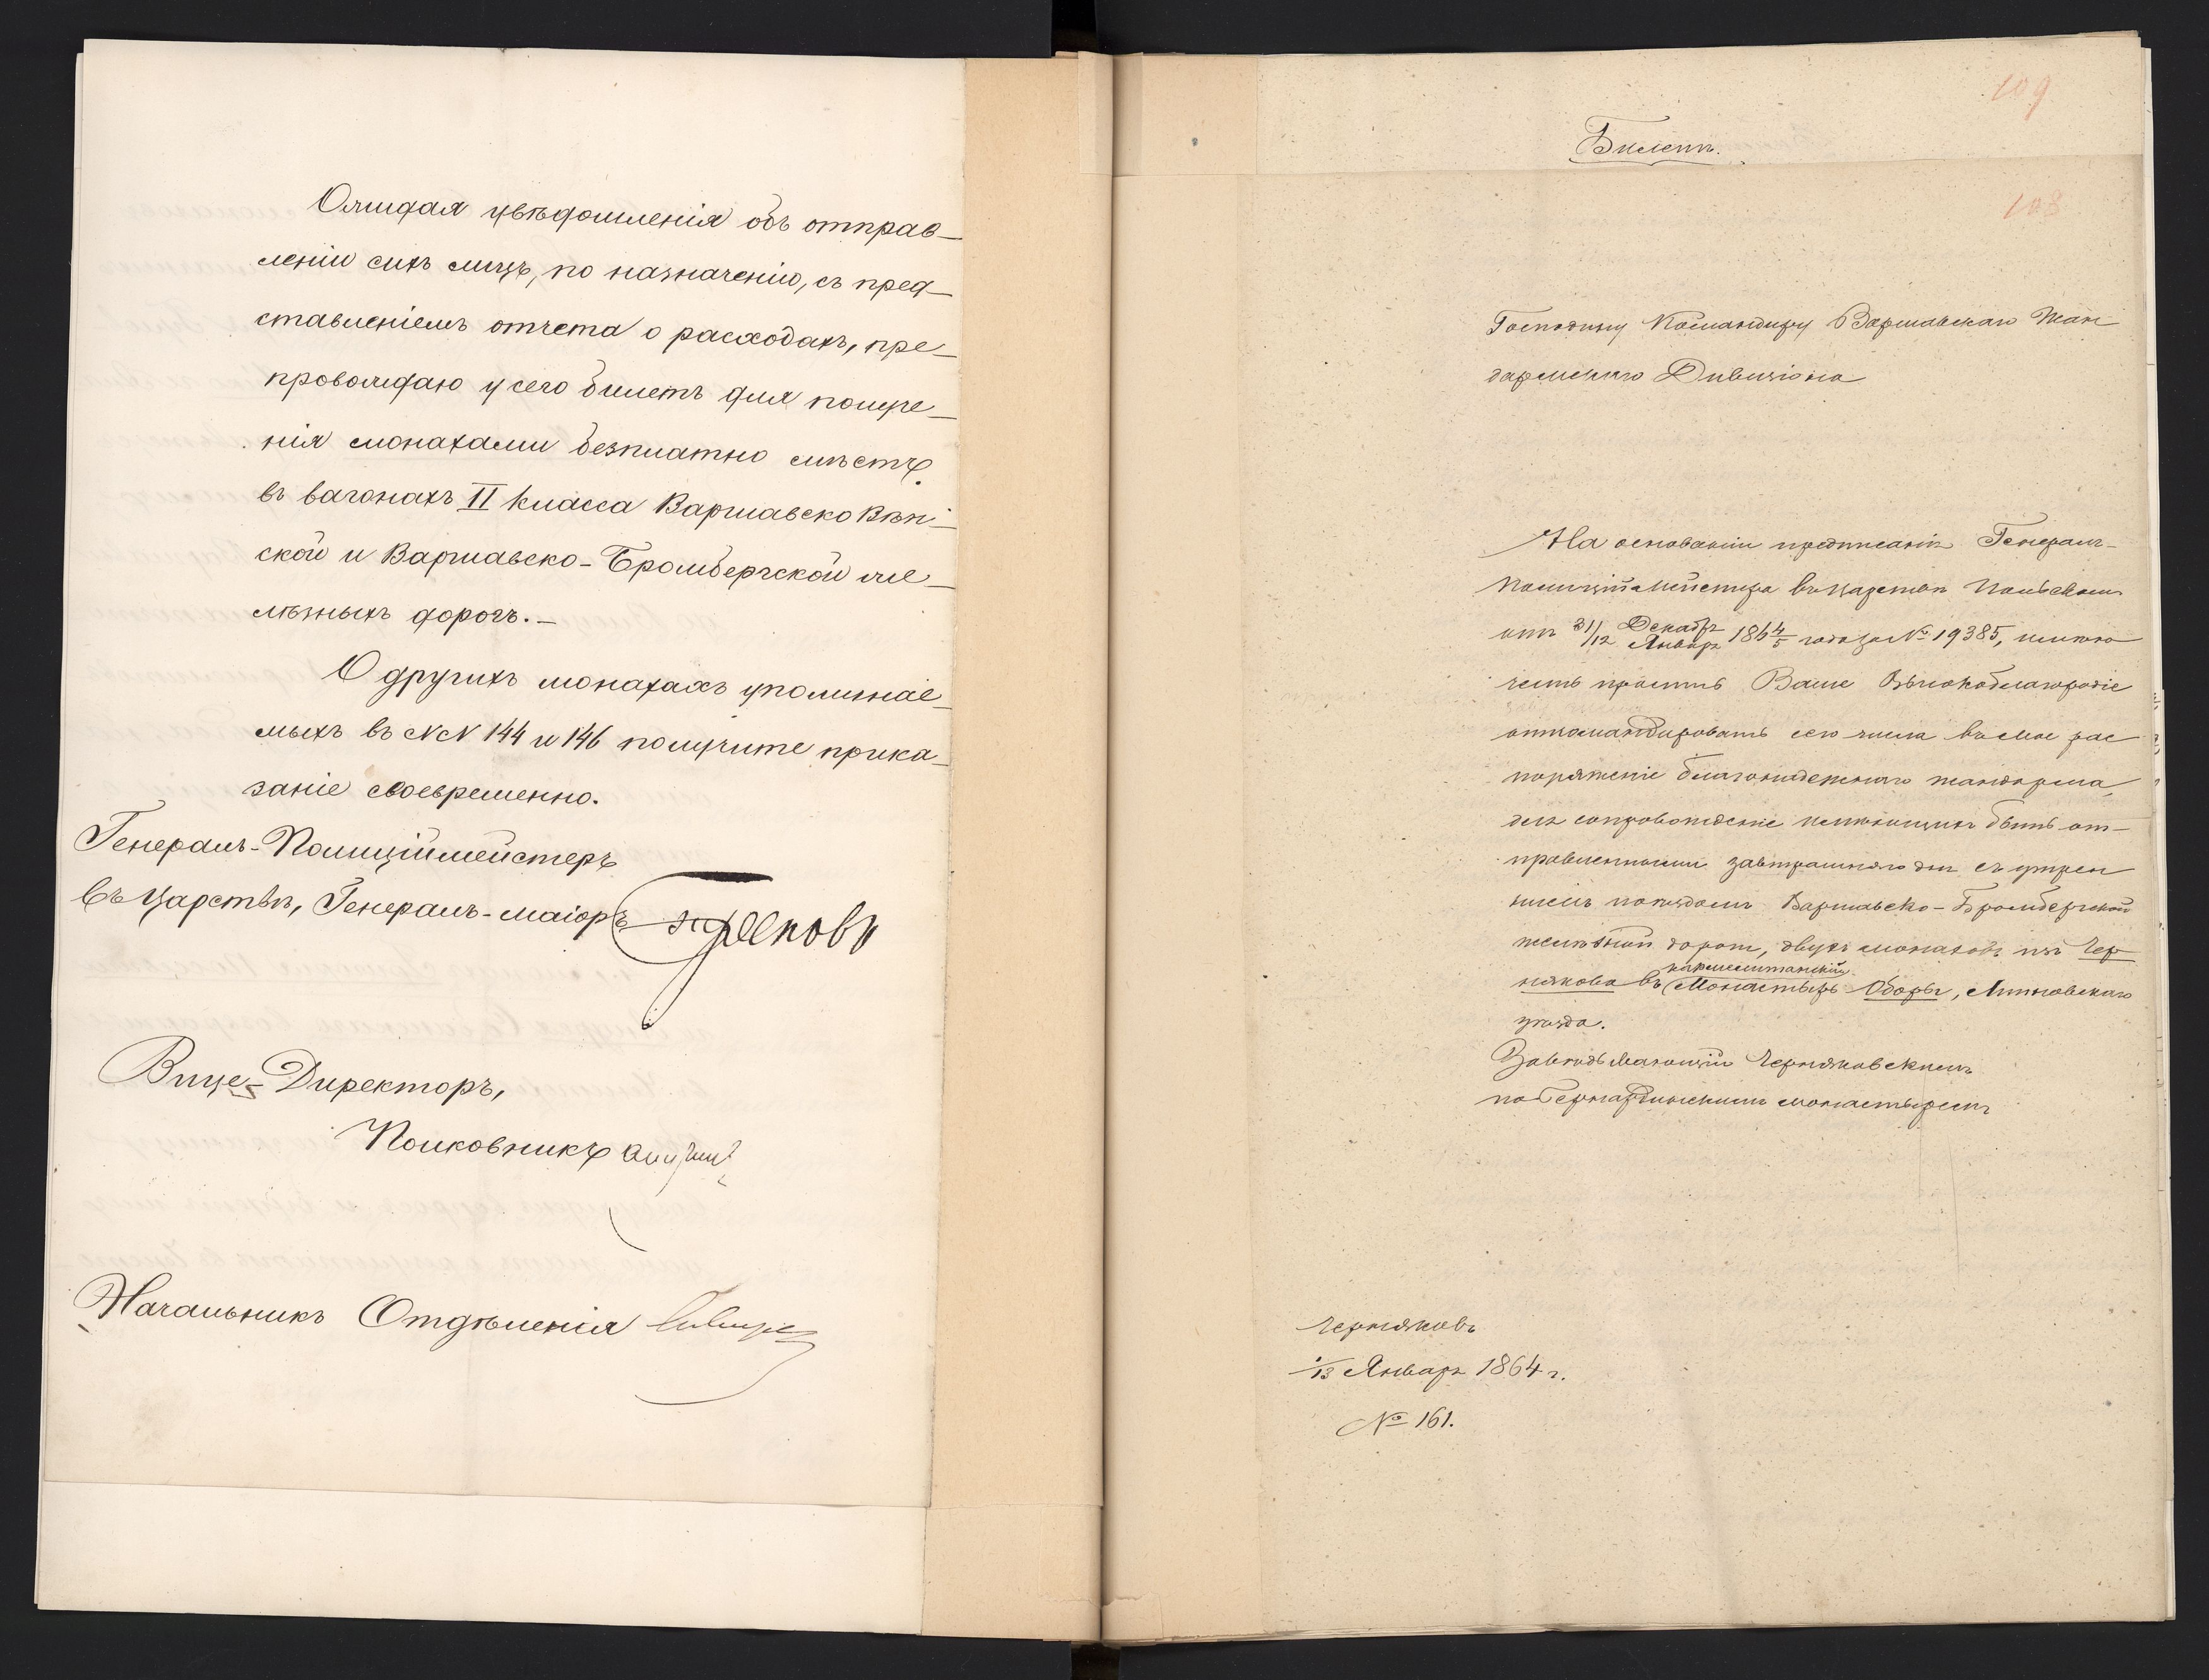 Ожидая увѣдомленія объ отправ-
леніи сихъ лицъ, по назначенію, съ пред-
ставленіемъ отчета о расходахъ, пре-
провождаю у сего билетъ для получе-
нія монахами безплатно мѣстъ
въ вагонахъ II класса Варшавско Вѣн-
ской и Варшавско-Бромбергской же-
лѣзныхъ дорогъ.-
О другихъ монахахъ упоминае-
мыхъ въ NN 144 и 146 получите прика-
заніе своевременно.
Генералъ-Полиціймейстеръ
въ Царствѣ, Генералъ-маіоръ
Вице-Директоръ,
Полковникъ
Начальникъ Отдѣленія
109
Билетъ.
108
Господину Командиру Варшавскаго Жан
дармскаго Дивизіона
На основаніи предписанія Генералъ-
Полиціймейстера въ Царствѣ Польскомъ
отъ 31/12 Декабр/Январ 1864/5 года за № 19385, имѣю
честь просить Ваше Высокоблагородіе
откомандировать сего числа въ мое рас
поряженіе благонадежнаго жандарма,
для сопровожденіе имѣющихъ быть от-
правленными завтрашняго дня съ утрен
нимъ поѣздомъ Варшавско-Бромбергской
желѣзной дороги, двухъ монаховъ изъ Чер
някова въ кармелитанскій Монастырь Оборы, Липновскаго
уѣзда.
Завѣдывающій Черняковскимъ
по Бернардинскимъ монастыремъ
Черняковъ
1/13 Январь 1864 г.
№ 161.